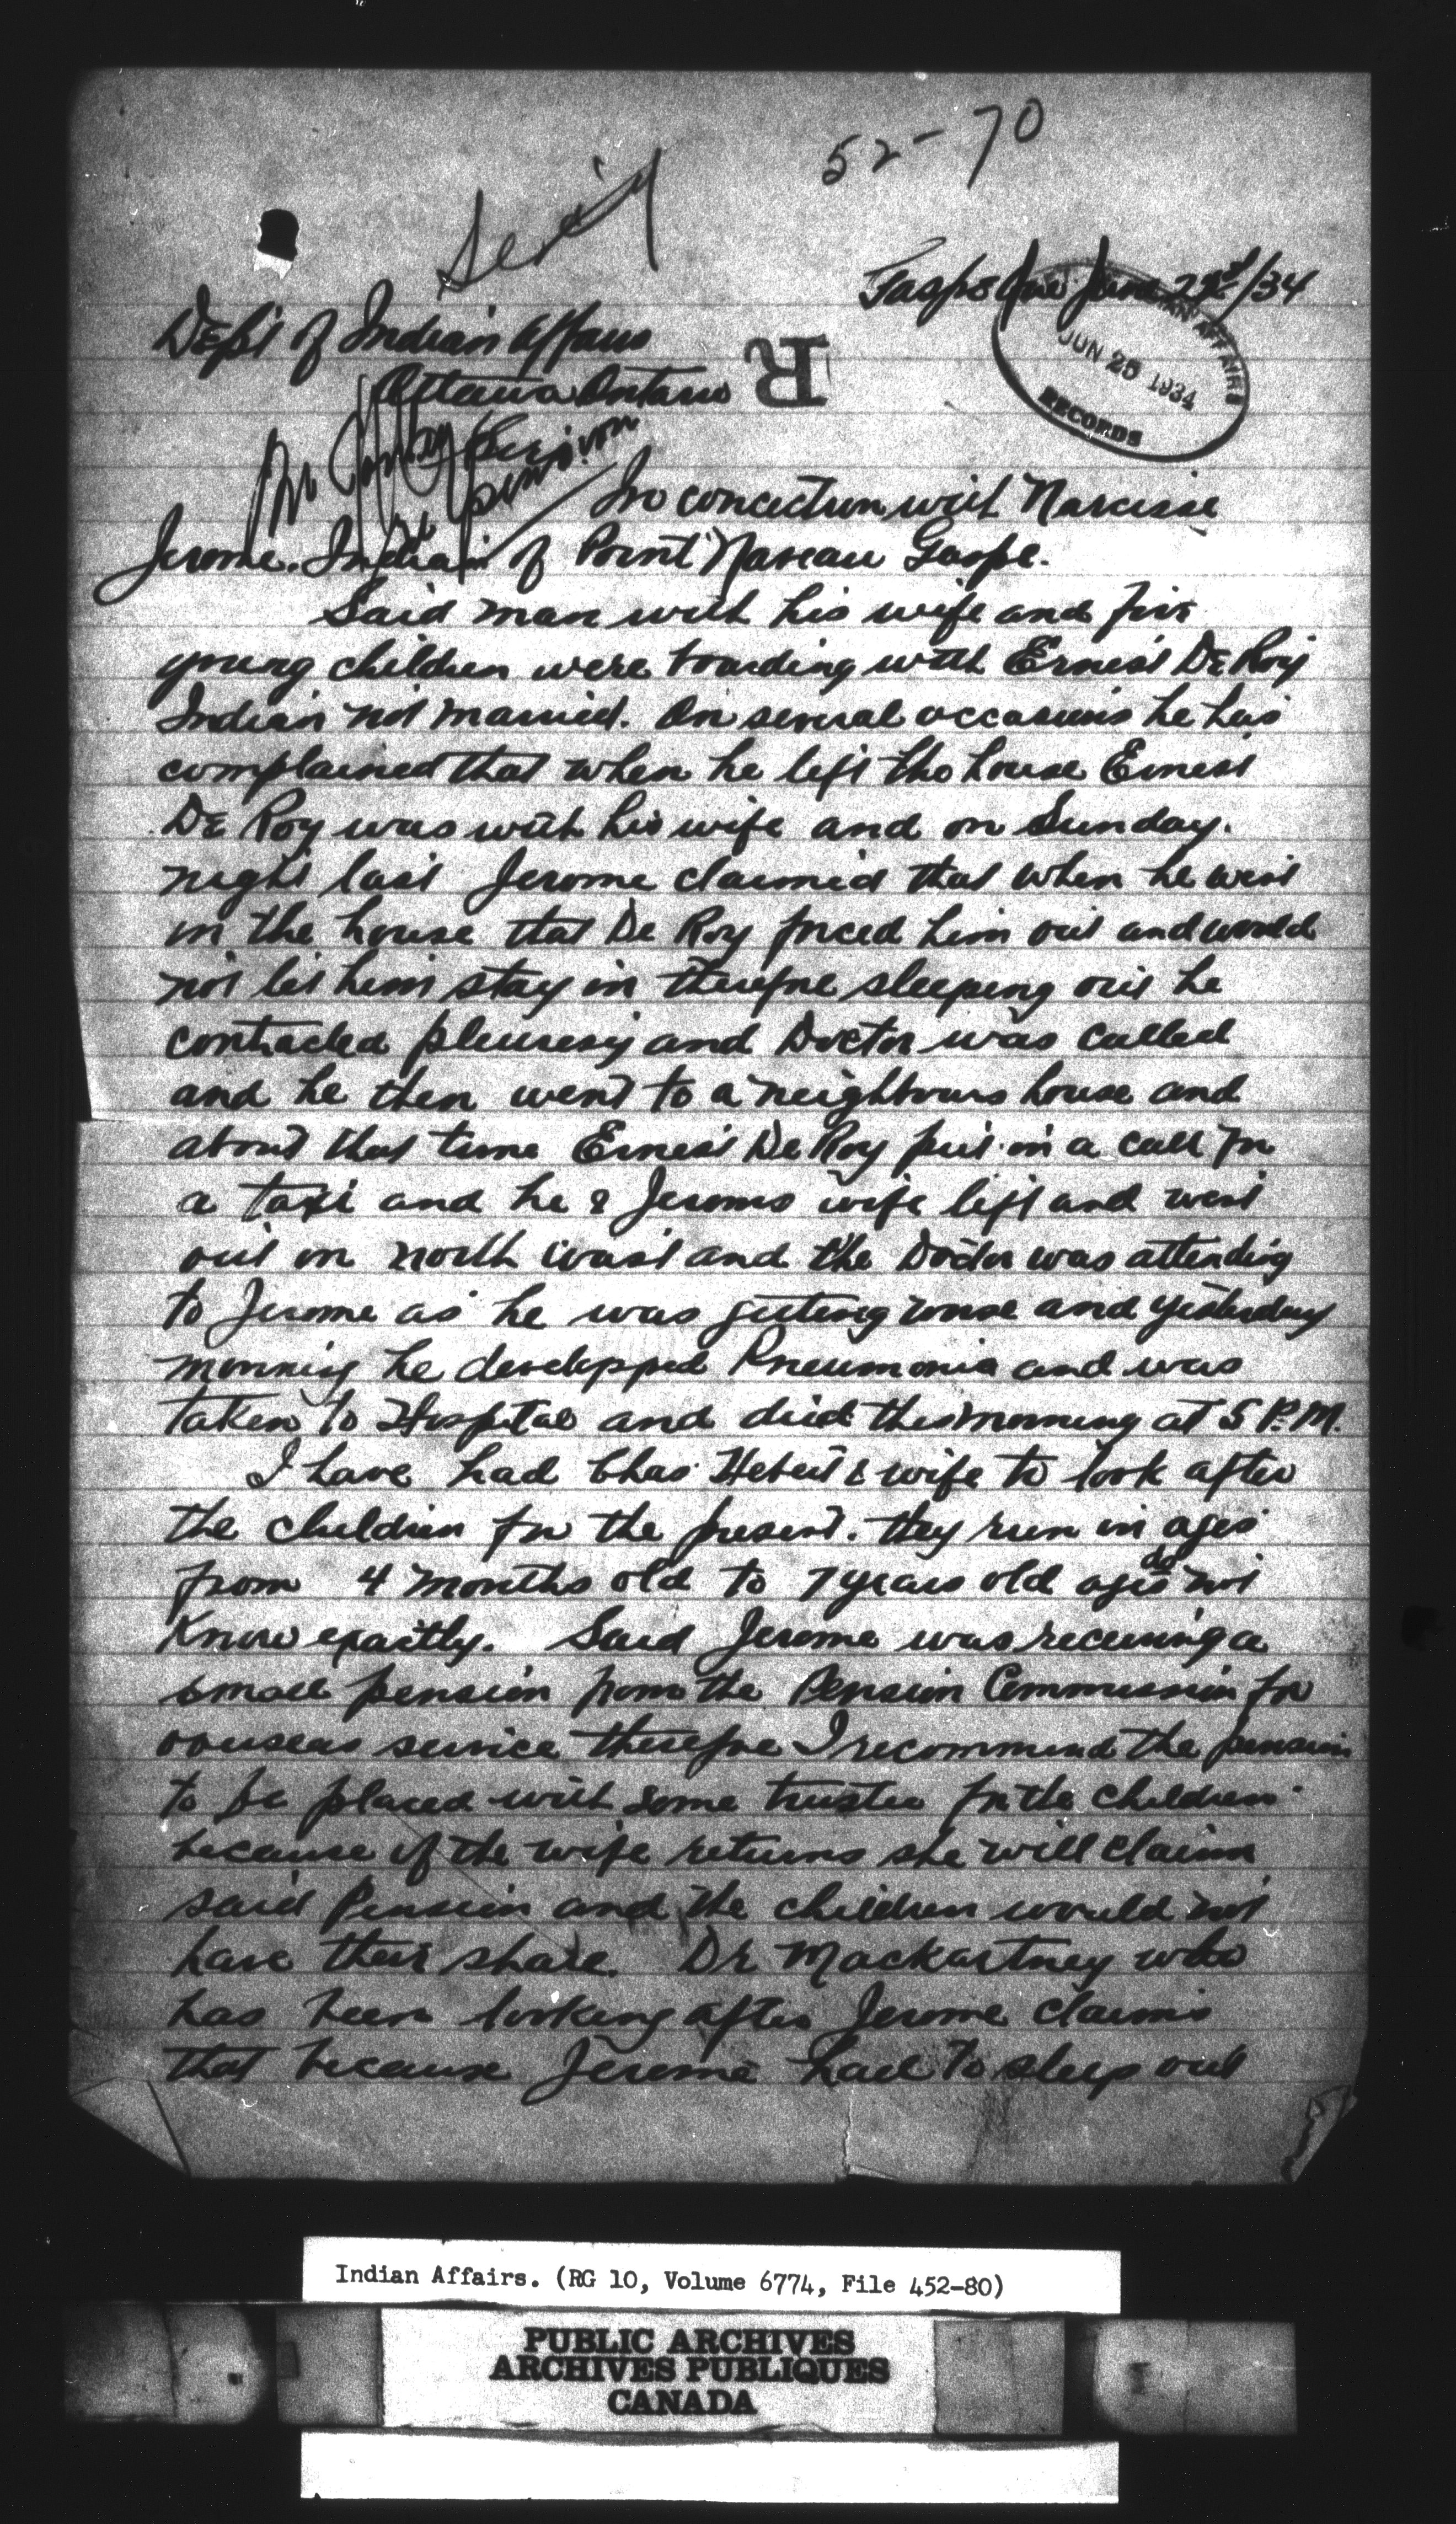 52-70
Gaspe Que June 22nd/34
INDIAN AFFAIRS
JUN 25 1934
RECORDS
Dept of Indian Affairs
Ottawa Ontario
R
pension
In conection with Narcisse
Jerome. Indian of Point Naveau Gaspe.
Said man with his wife and five
young children were boarding with Ernest De Roy
Indian not married. On several occasions he has
complained that when he left the house Ernest
De Roy was with his wife and on Sunday.
night last Jerome claimed that when he went
in the house that De Roy forced him out and would
not let him stay in therefore sleeping out he
contracted pleuresy and Doctor was called
and he then went to a neighbours house and
about that time Ernest De Roy put in a call for
a taxi and he & Jeroms wife left and went
out on north Coast and the Doctor was attending
to Jerome as he was getting worse and yesterday
morning he developped Pneumonia and was
taken to Hospital and died this morning at 5 P.M.
I have had Chas. Hebert & wife to look after
the children for the present. they run in ages
from 4 months old to 7 years old ages do not
Know exactly. Said Jerome was receiving a
small pension from the Pension Commission for
overseas service therefore I recommend the pension
to be placed with some trustee for the children
because if the wife returns she will claim
said Pension and the children would not
have their share. Dr Mackartney who
has been looking after Jerome claims
that because Jerome had to sleep out
Indian Affairs. (RG 10, Volume 6774, File 452-80)
PUBLIC ARCHIVES
ARCHIVES PUBLIQUES
CANADA